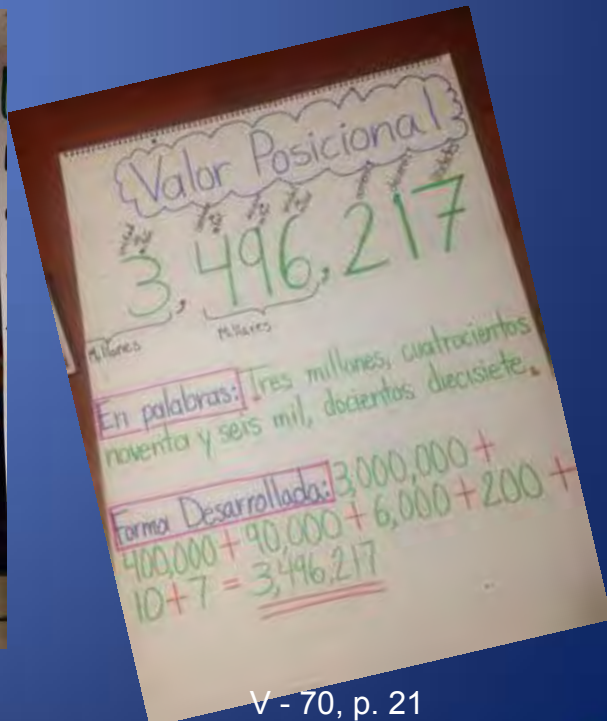 Valor Posicional
3,496,217
Millones
Millares
En palabras: Tres millones, cuatrocientos
noventa y seis mil, docientos diecisiete.
Forma Desarrollada: 3,000,000 +
400,000 + 90,000 + 6,000 + 200 +
10 + 7 = 3,496,217
V - 70, p. 21